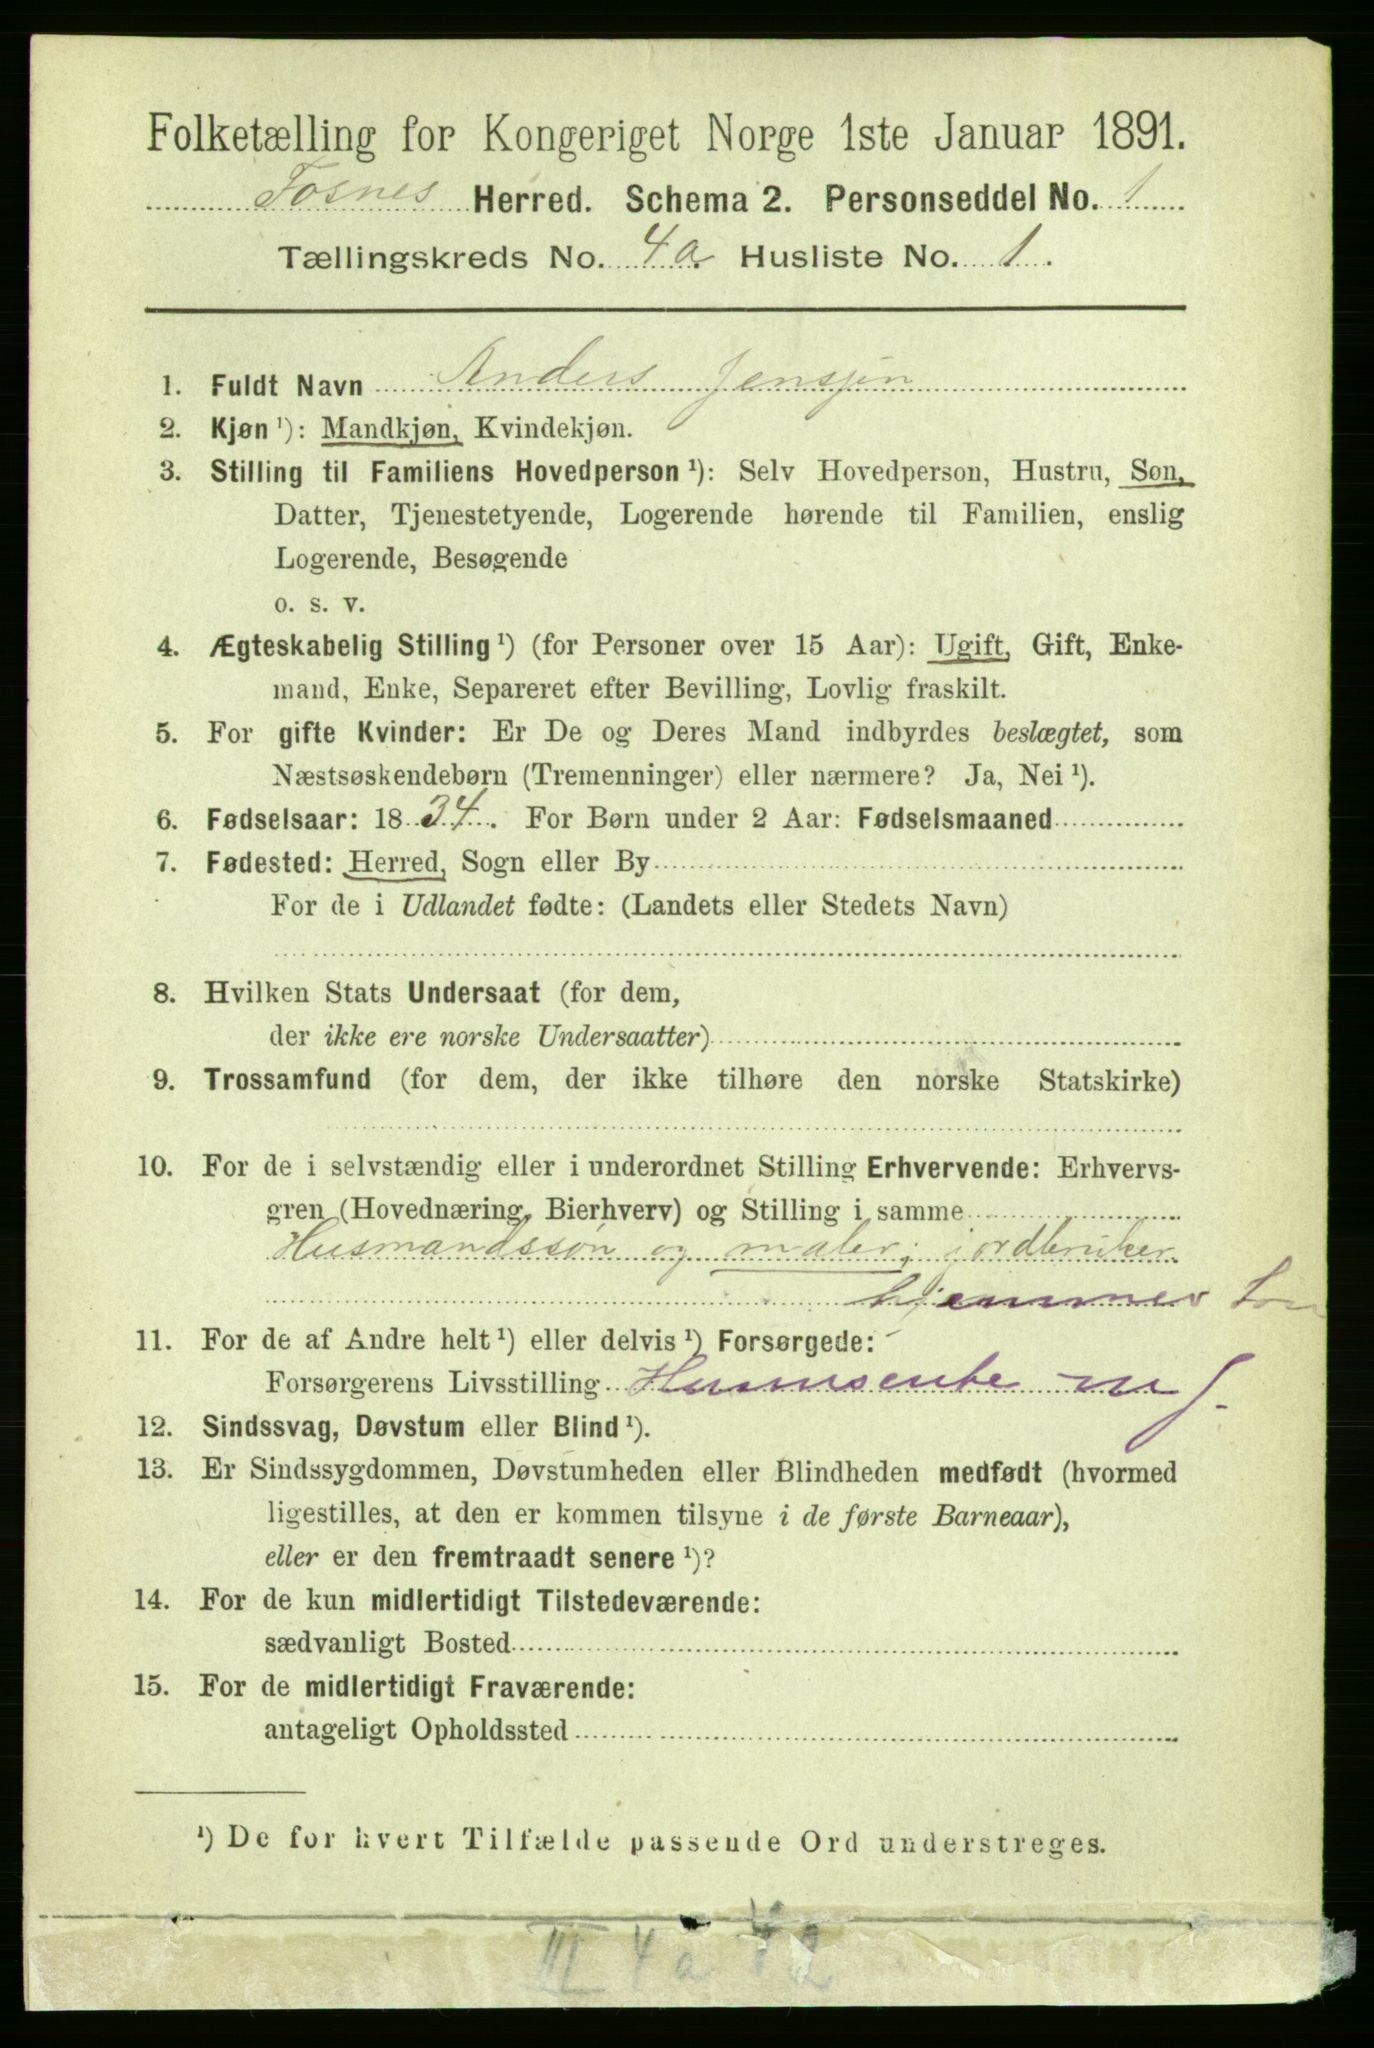 Folketælling for Kongeriget Norge 1ste Januar 1891.
Fosnes Herred. Schema 2. Personseddel No. 1
Tællingskreds No. 4a Husliste No. 1.
1. Fuldt Navn Anders Jenssen
2. Kjøn ¹): Mandkjøn, Kvindekjøn.
3. Stilling til Familiens Hovedperson ¹): Selv Hovedperson, Hustru, Søn,
Datter, Tjenestetyende, Logerende hørende til Familien, enslig
Logerende, Besøgende
o. s. v.
4. Ægteskabelig Stilling ¹) (for Personer over 15 Aar): Ugift, Gift, Enke-
mand, Enke, Separeret efter Bevilling, Lovlig fraskilt.
5. For gifte Kvinder: Er De og Deres Mand indbyrdes beslægtet, som
Næstsøskendebørn (Tremenninger) eller nærmere? Ja, Nei ¹).
6. Fødselsaar: 1834. For Børn under 2 Aar: Fødselsmaaned
7. Fødested: Herred, Sogn eller By
For de i Udlandet fødte: (Landets eller Stedets Navn)
8. Hvilken Stats Undersaat (for dem,
der ikke ere norske Undersaatter)
9. Trossamfund (for dem, der ikke tilhøre den norske Statskirke)
10. For de i selvstændig eller i underordnet Stilling Erhvervende: Erhvervs-
gren (Hovednæring, Bierhverv) og Stilling i samme
Husmandssøn og maler; jordbruker
hjemmev
11. For de af Andre helt ¹) eller delvis ¹) Forsørgede:
Forsørgerens Livsstilling m J.
12. Sindssvag, Døvstum eller Blind ¹).
13. Er Sindssygdommen, Døvstumheden eller Blindheden medfødt (hvormed
ligestilles, at den er kommen tilsyne i de første Barneaar),
eller er den fremtraadt senere ¹)?
14. For de kun midlertidigt Tilstedeværende:
sædvanligt Bosted
15. For de midlertidigt Fraværende:
antageligt Opholdssted
¹) De for hvert Tilfælde passende Ord understreges.
III 4a